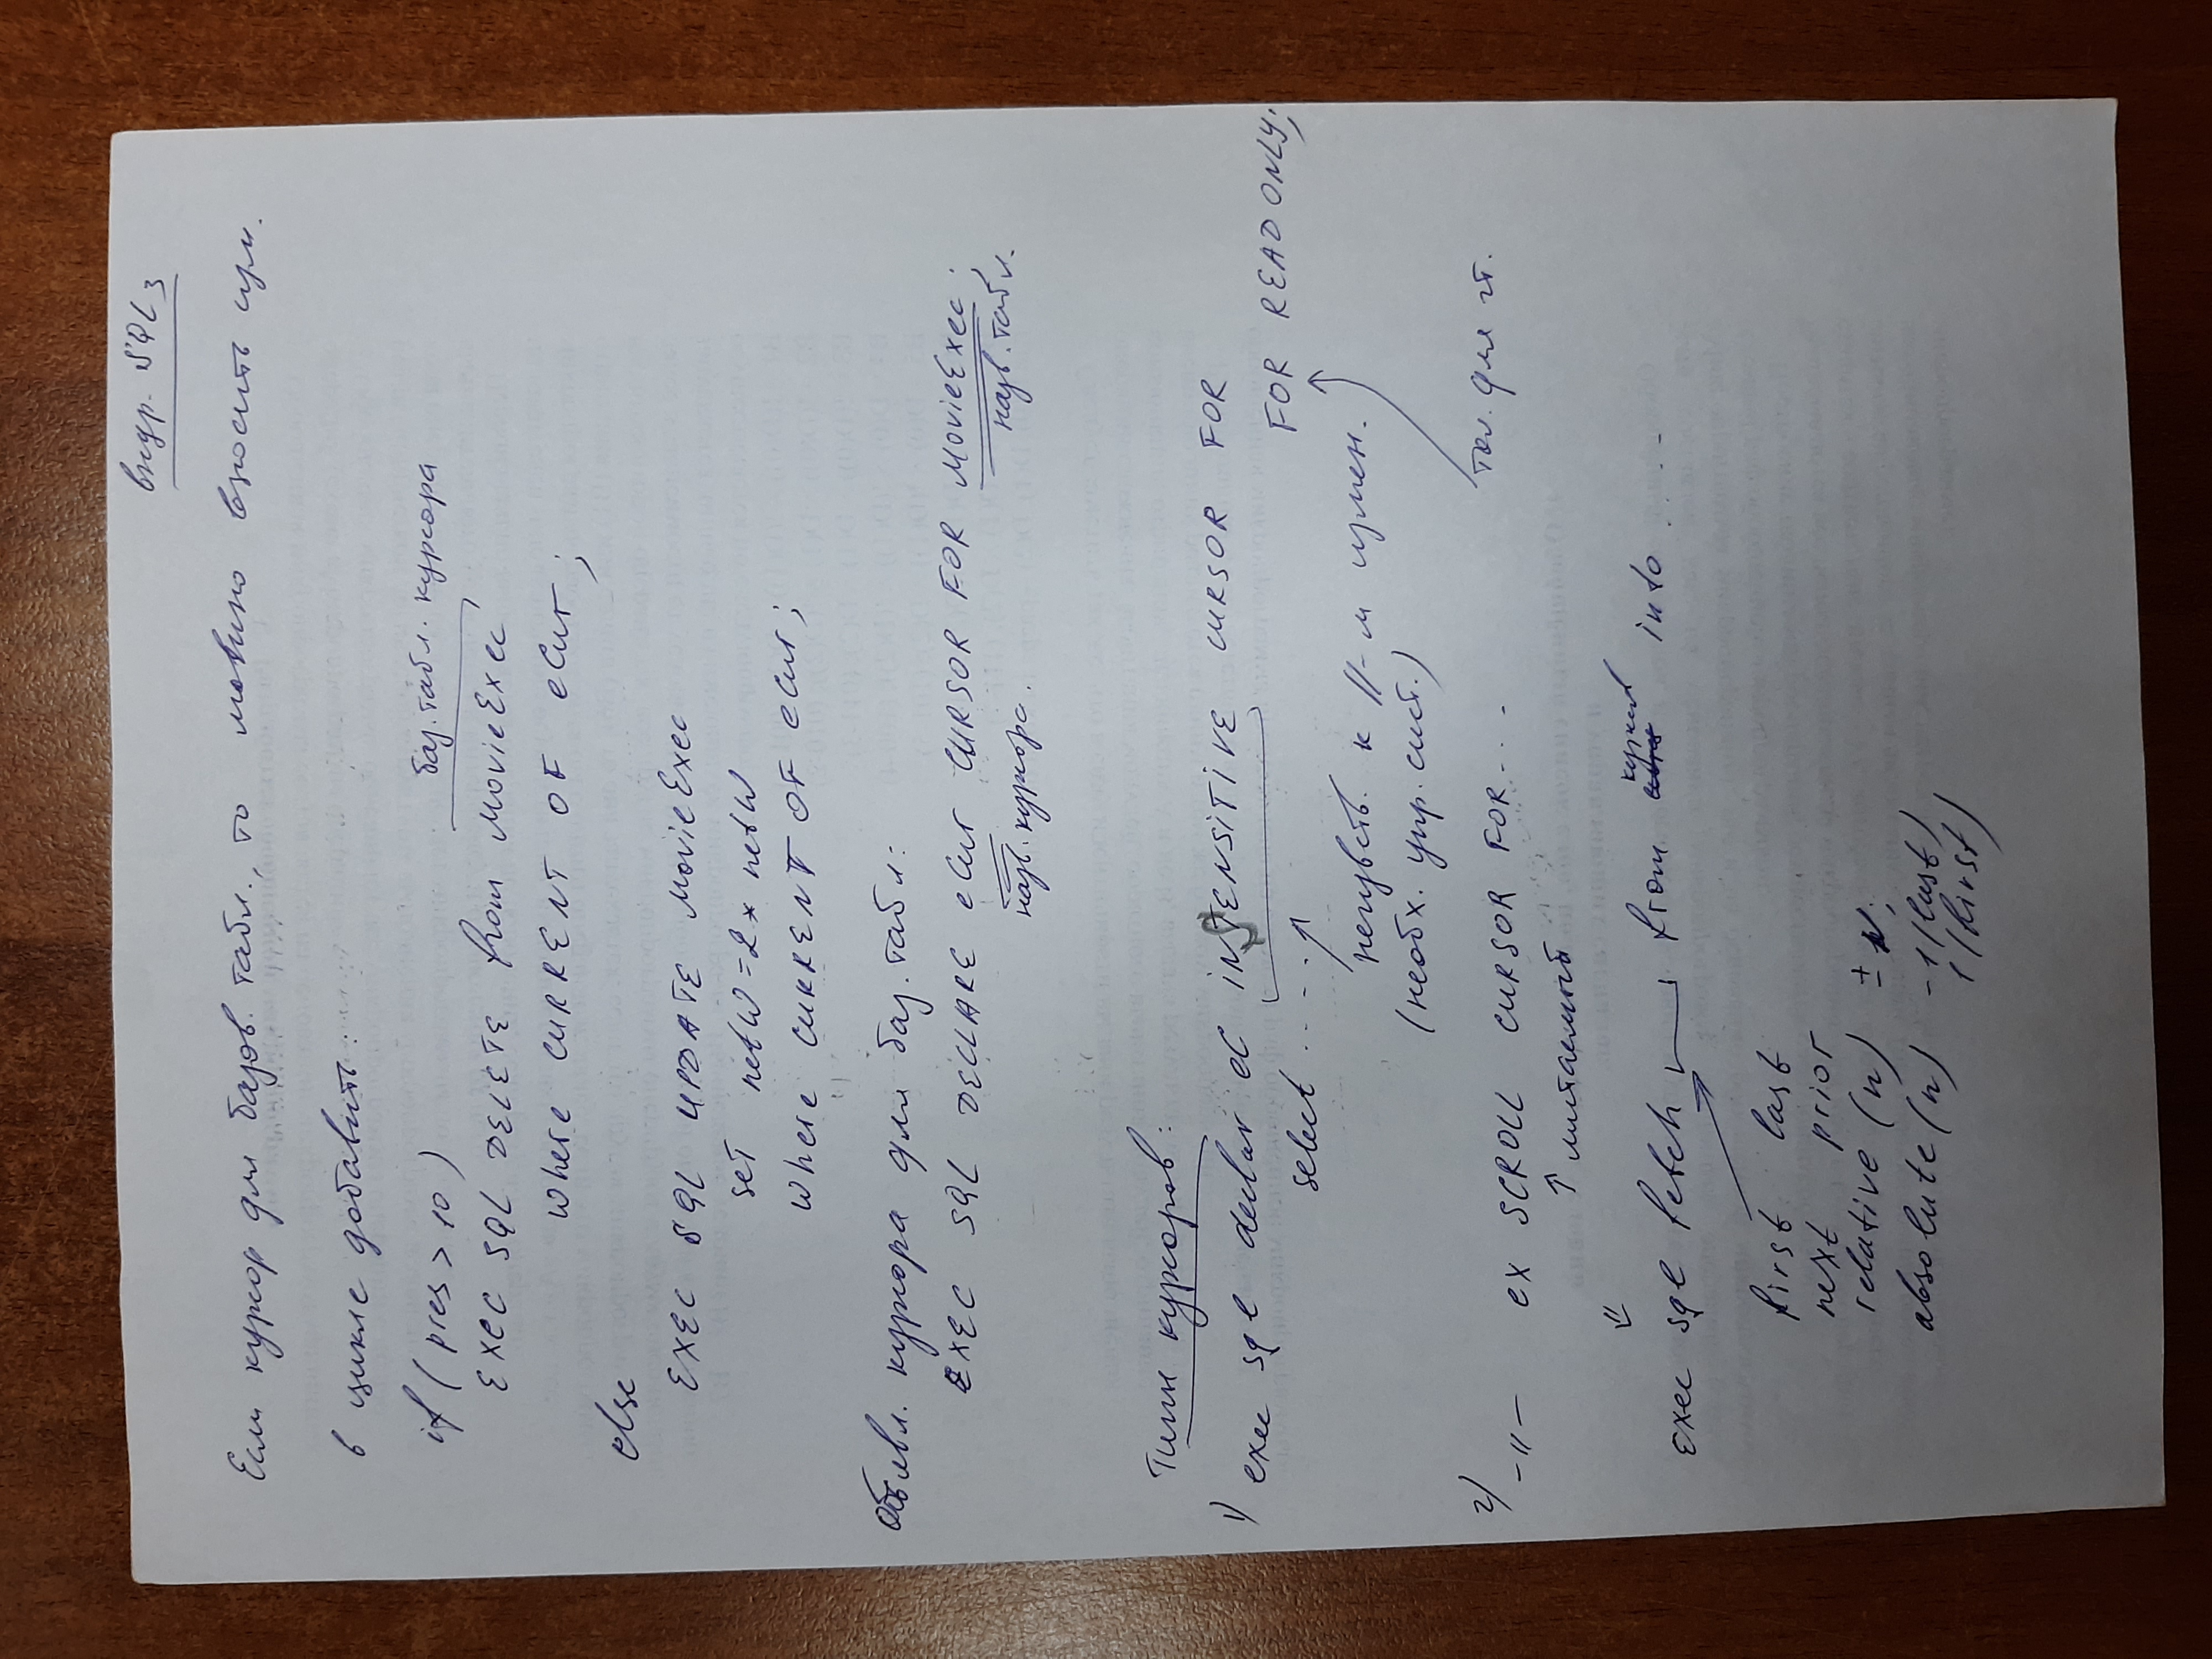 внедр. SQL 3
Если курсор для базов. табл., то можно вносить изм.
в цикле добавить:
if ( pres > 10 )
баз. табл. курсора
EXEC SQL DELETE from MovieExec
where CURRENT OF eCur ;
else
EXEC SQL UPDATE MovieExec
SET netW = 2 * netW
where CURRENT OF eCur ;
Объявл. курсора для баз. табл:
EXEC SQL DECLARE eCur CURSOR FOR MovieExec ;
назв. курсора.
назв. табл.
Типы курсоров:
1) exec sql declar eC INSENSITIVE CURSOR FOR
select .....
FOR READ ONLY;
нечувств. к ||-м измен.
(необх. упр. сист.)
тол. для чт.
2) -"- ex SCROLL CURSOR FOR ...
↑ листаемый
⇓
exec sql fetch from курсив into .....
first last
next prior
relative (n) ± N;
absolute (n) -1 (last)
1 (first)